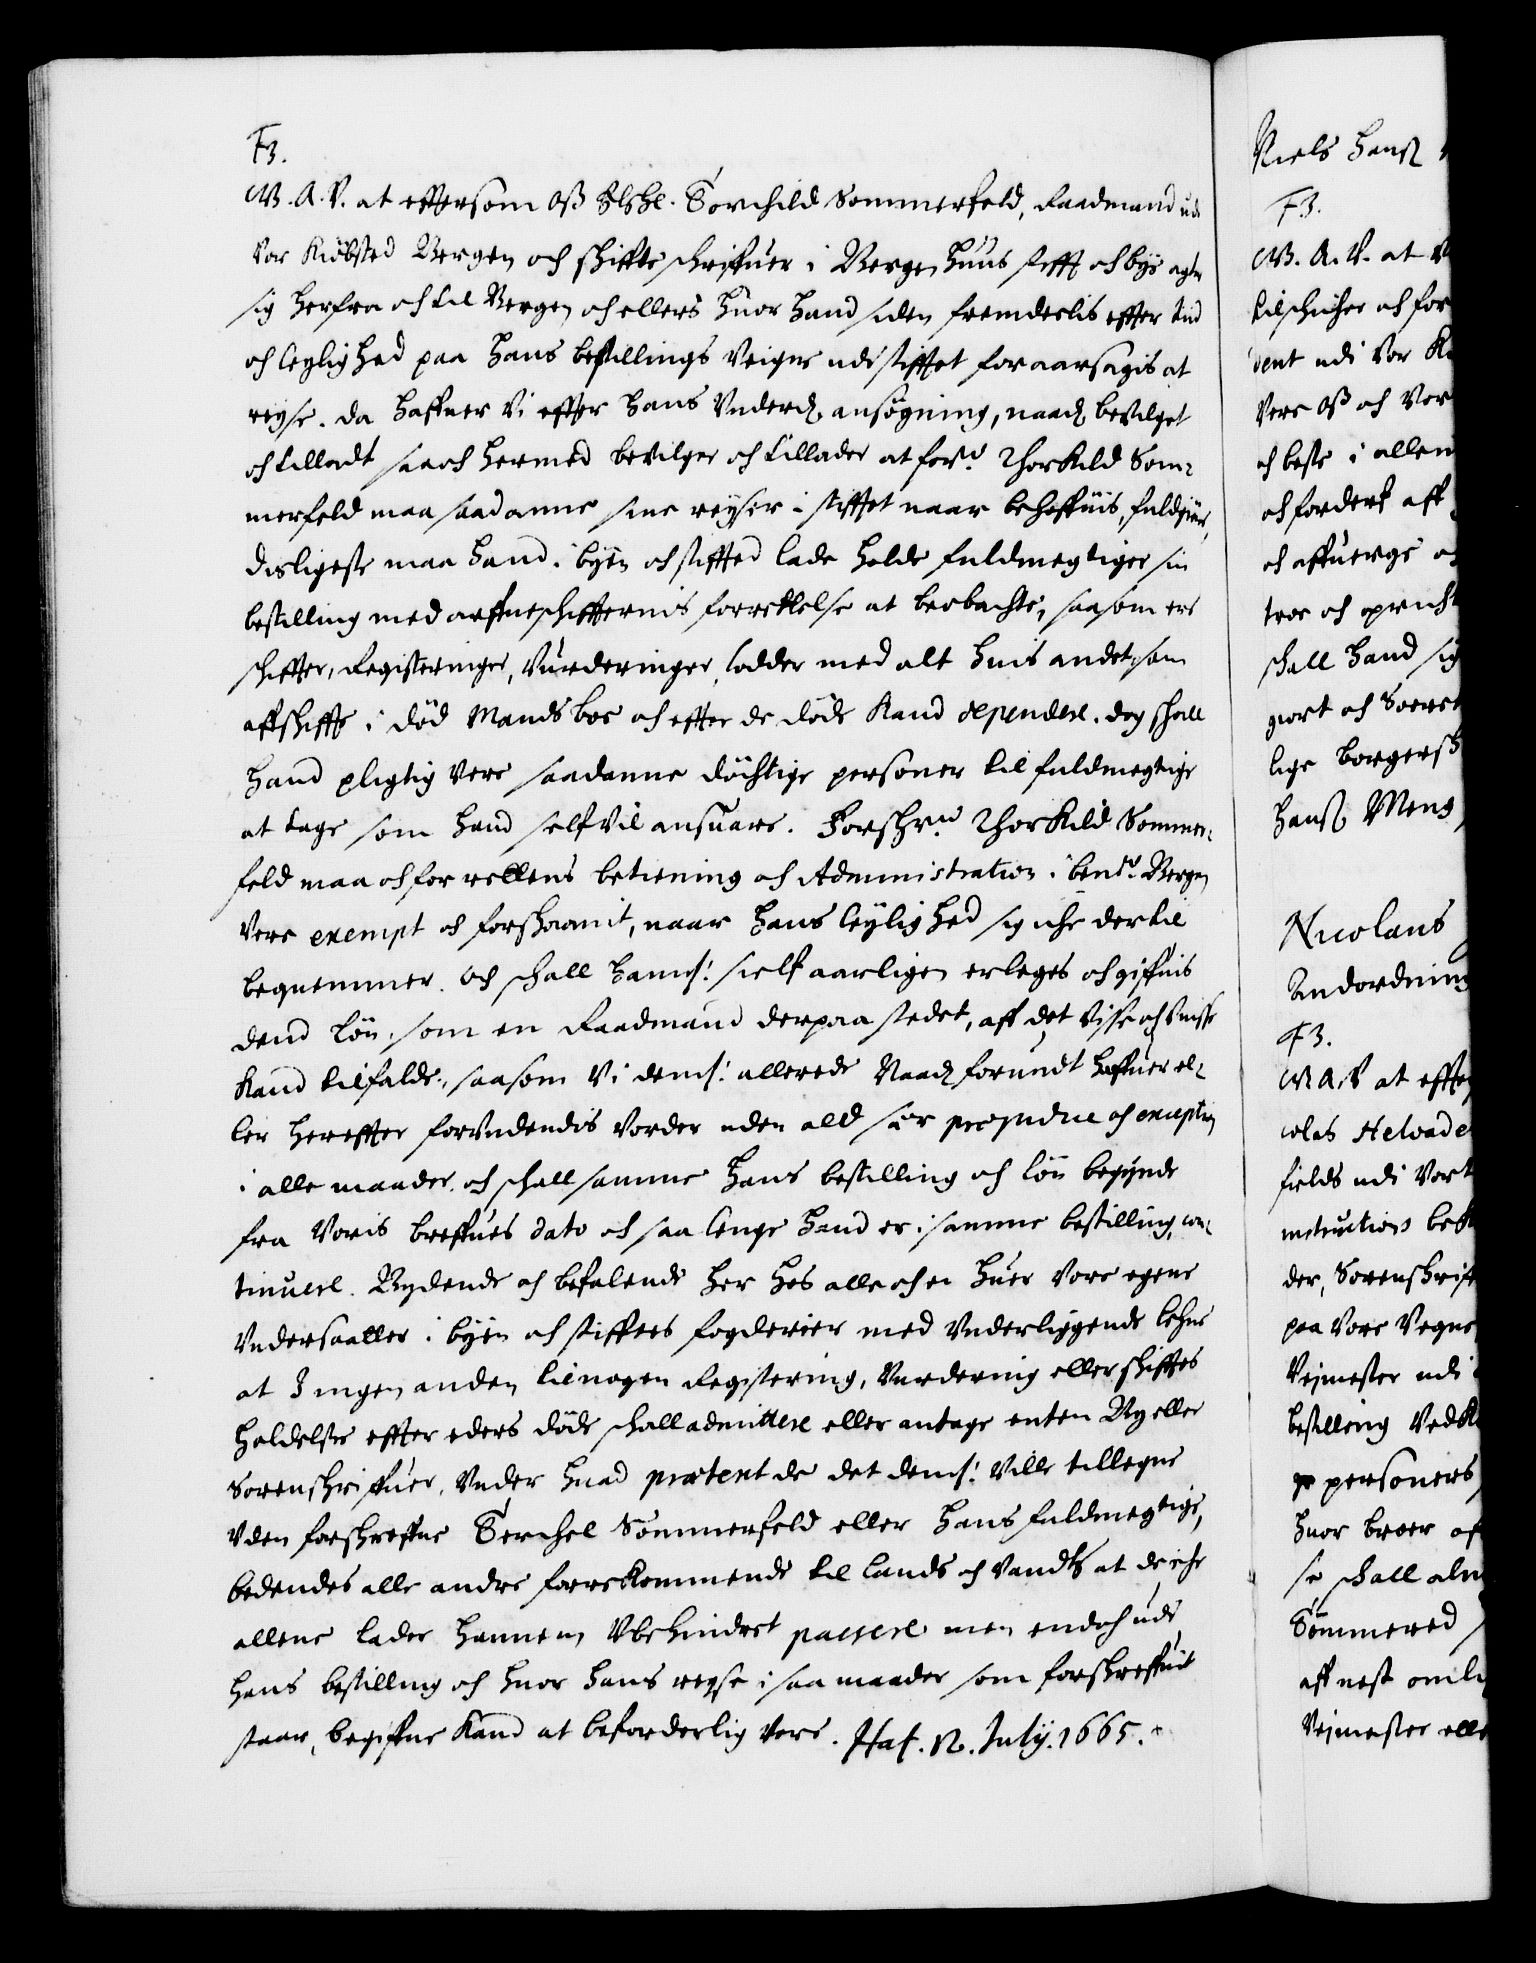 F3.
W. A. V. at eftersom Oß Elskl. Torchild Sommerfeld, Raadmand udi
Vor Kiöbsted Bergen och skifte schriffuer i Bergenhuus stifft och bys agter
sig herfra och til Bergen och ellers huor hand siden fremdelis effter tid
och leylighed paa hans bestillings Veigne udi stifftet foraarsagis at
reyse. da haffuer Vi effter hans Underd. ansøgning, naad. bevilget
och tilladt saa och hermed bevilger och tillader at forn. Thorkild Som-
merfeld maa saadanne sine reyser i stifftet naar behoffuis, fuldgiøre,
disligeste maa hand i byen och stifftet lade holde fuldmegtiger sin
bestilling med arffueschiffternis forrettelse at beobachte, saasom ere
schiffter, Registeringer, Vurderinger, lodder med alt huis andet som
affskifft i död Mands boe och effter de döde kand dependere. dog skall
hand pligtig vere saadanne döchtige personer til fuldmegtige
at tage som hand self vil ansuare. Forschrne Thorkild Sommer-
feld maa och for rettens betiening och Administration i bemte Bergen
Vere exempt och forskaanit, naar hans leylighed sig iche dertil
beqvemmer. Och schall hannem sielf aarligen erleges och giffuis
dend Lön, som en Raadmand derpaa stedet, aff det visse och uvisse
kand tilfalde, saasom Vi dem allerede Naad. forundt haffuer el-
ler hereffter forundendis vorder uden all dis præjudice och exception
i alle maader, och schall samme hans bestilling och lön begynde
fra Voris breffues dato och saa lenge hand er i samme bestilling, con-
tinuere. Bydende och befalende her hos alle och en huer Vore egene
Undersaatter i byen och stifftes fogderier med Underliggende lehne
at I ingen anden til nogen Registering, Vurdering eller skifftes
holdelse effter eders döde schall admittere eller antage enten By eller
Sorenskriffuer, Under huad prætext de det dem ville tillegne
Uden forschreffne Terchel Sommerfeld eller hans fuldmegtige,
bedendes alle andre forrekommende til lands och Vands at de iche
allene lader hannem Ubehindret passere men endoch udi
hans bestilling och huor hans reyse i saa maader som forskreffuit
staar, begiffue kand at beforderlig vere. Haf. 12. July. 1665.
Niels Hanß
F3.
W. A. V. at V
tilschicher och for
dent udi Vor K
Vere Oß och Vor
och beste i allem
och forderf aff
och affuerge
troe och oprich
schall hand sig
giort och Soere
lige borgersk
Hanß Meng
Nicolaus
Andordning
F3.
W A. V at effte
colas Helvade
fields udi Vort
instruction bek
der, Sorenskrif
paa Vore Vegne
Veimester udi
bestilling Vedk
personers
huor broer
se schall alm
Sömmered
aff nest omli
Veimester elle